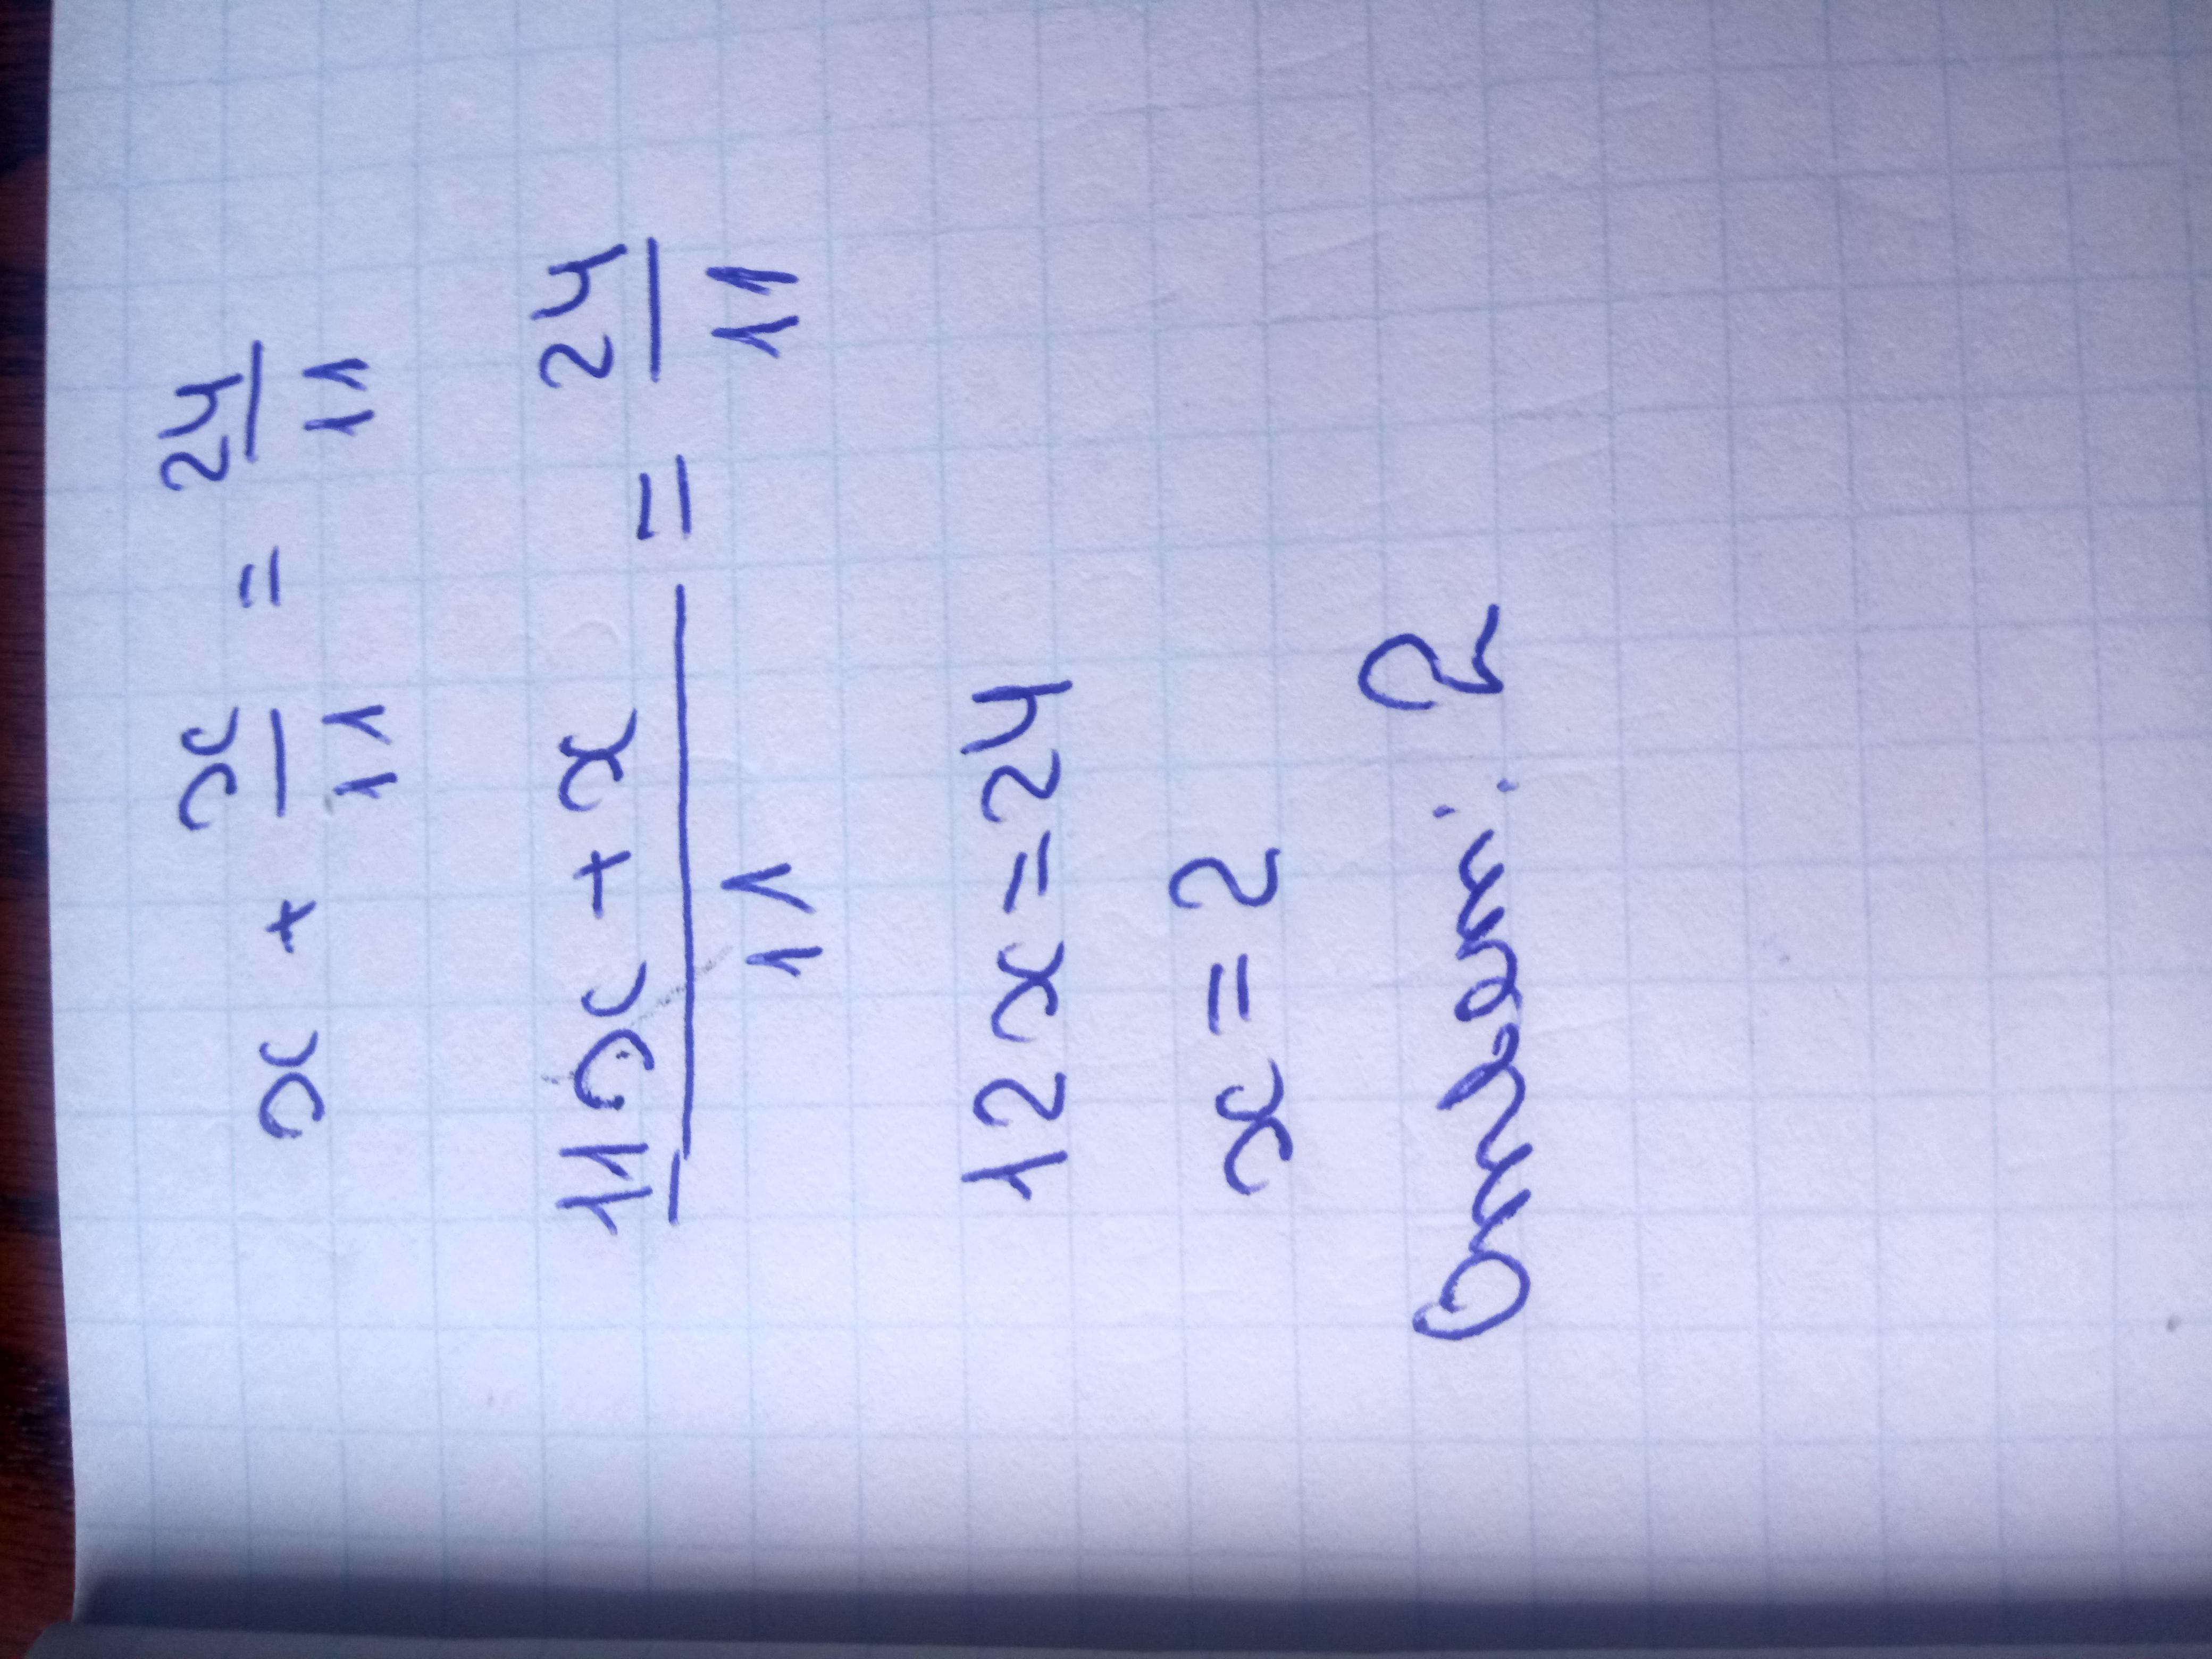 x + x/11 = 24/11
11x + x/11 = 24/11
12x = 24
x = 2
Ответ: 2